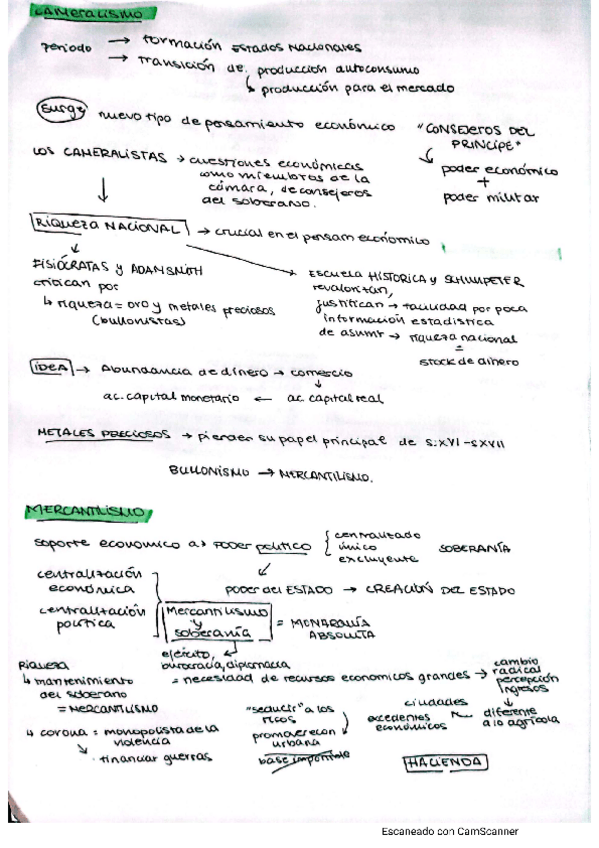 CAMERALISMO
Periodo → formación Estados Nacionales
→ Transición de producción autoconsumo
↳ producción para el mercado
Surge nuevo tipo de pensamiento económico "CONSEJEROS DEL PRÍNCIPE"
LOS CAMERALISTAS → cuestiones económicas
como miembros de la
cámara, de consejeros
del soberano.
poder económico
+
poder militar
RIQUEZA NACIONAL → crucial en el pensam económico
FISIÓCRATAS y ADAM SMITH
critican por
↳ riqueza = oro y metales preciosos
(bullonistas)
ESCUELA HISTÓRICA y SCHUMPETER
revalorizan,
justifican → facilidad por poca
información estadística
de asumir → riqueza nacional
=
stock de dinero
IDEA → Abundancia de dinero → comercio
ac. capital monetario ← ac. capital real
METALES PRECIOSOS → pierden su papel principal de S.XVI-SXVII
BULLONISMO → MERCANTILISMO.
MERCANTILISMO
soporte economico a> PODER politico { centralizado
único
excluyente
SOBERANÍA
centralización
económica
centralización
política
PODER del ESTADO → CREACIÓN DEL ESTADO
Mercantilismo
y
soberanía
= MONARQUÍA
ABSOLUTA
ejército,
burocracia, diplomacia
= necesidad de recursos economicos grandes → cambio
radical
percepción
ingresos
Riqueza
↳ mantenimiento
del soberano
= MERCANTILISMO
↳ corona = monopolista de la
violencia
financiar guerras
"seducir" a los
ricos
promover econ
urbana
base imponible
ciudades
excedentes
económicos
diferente
a lo agrícola
HACIENDA
Escaneado con CamScanner